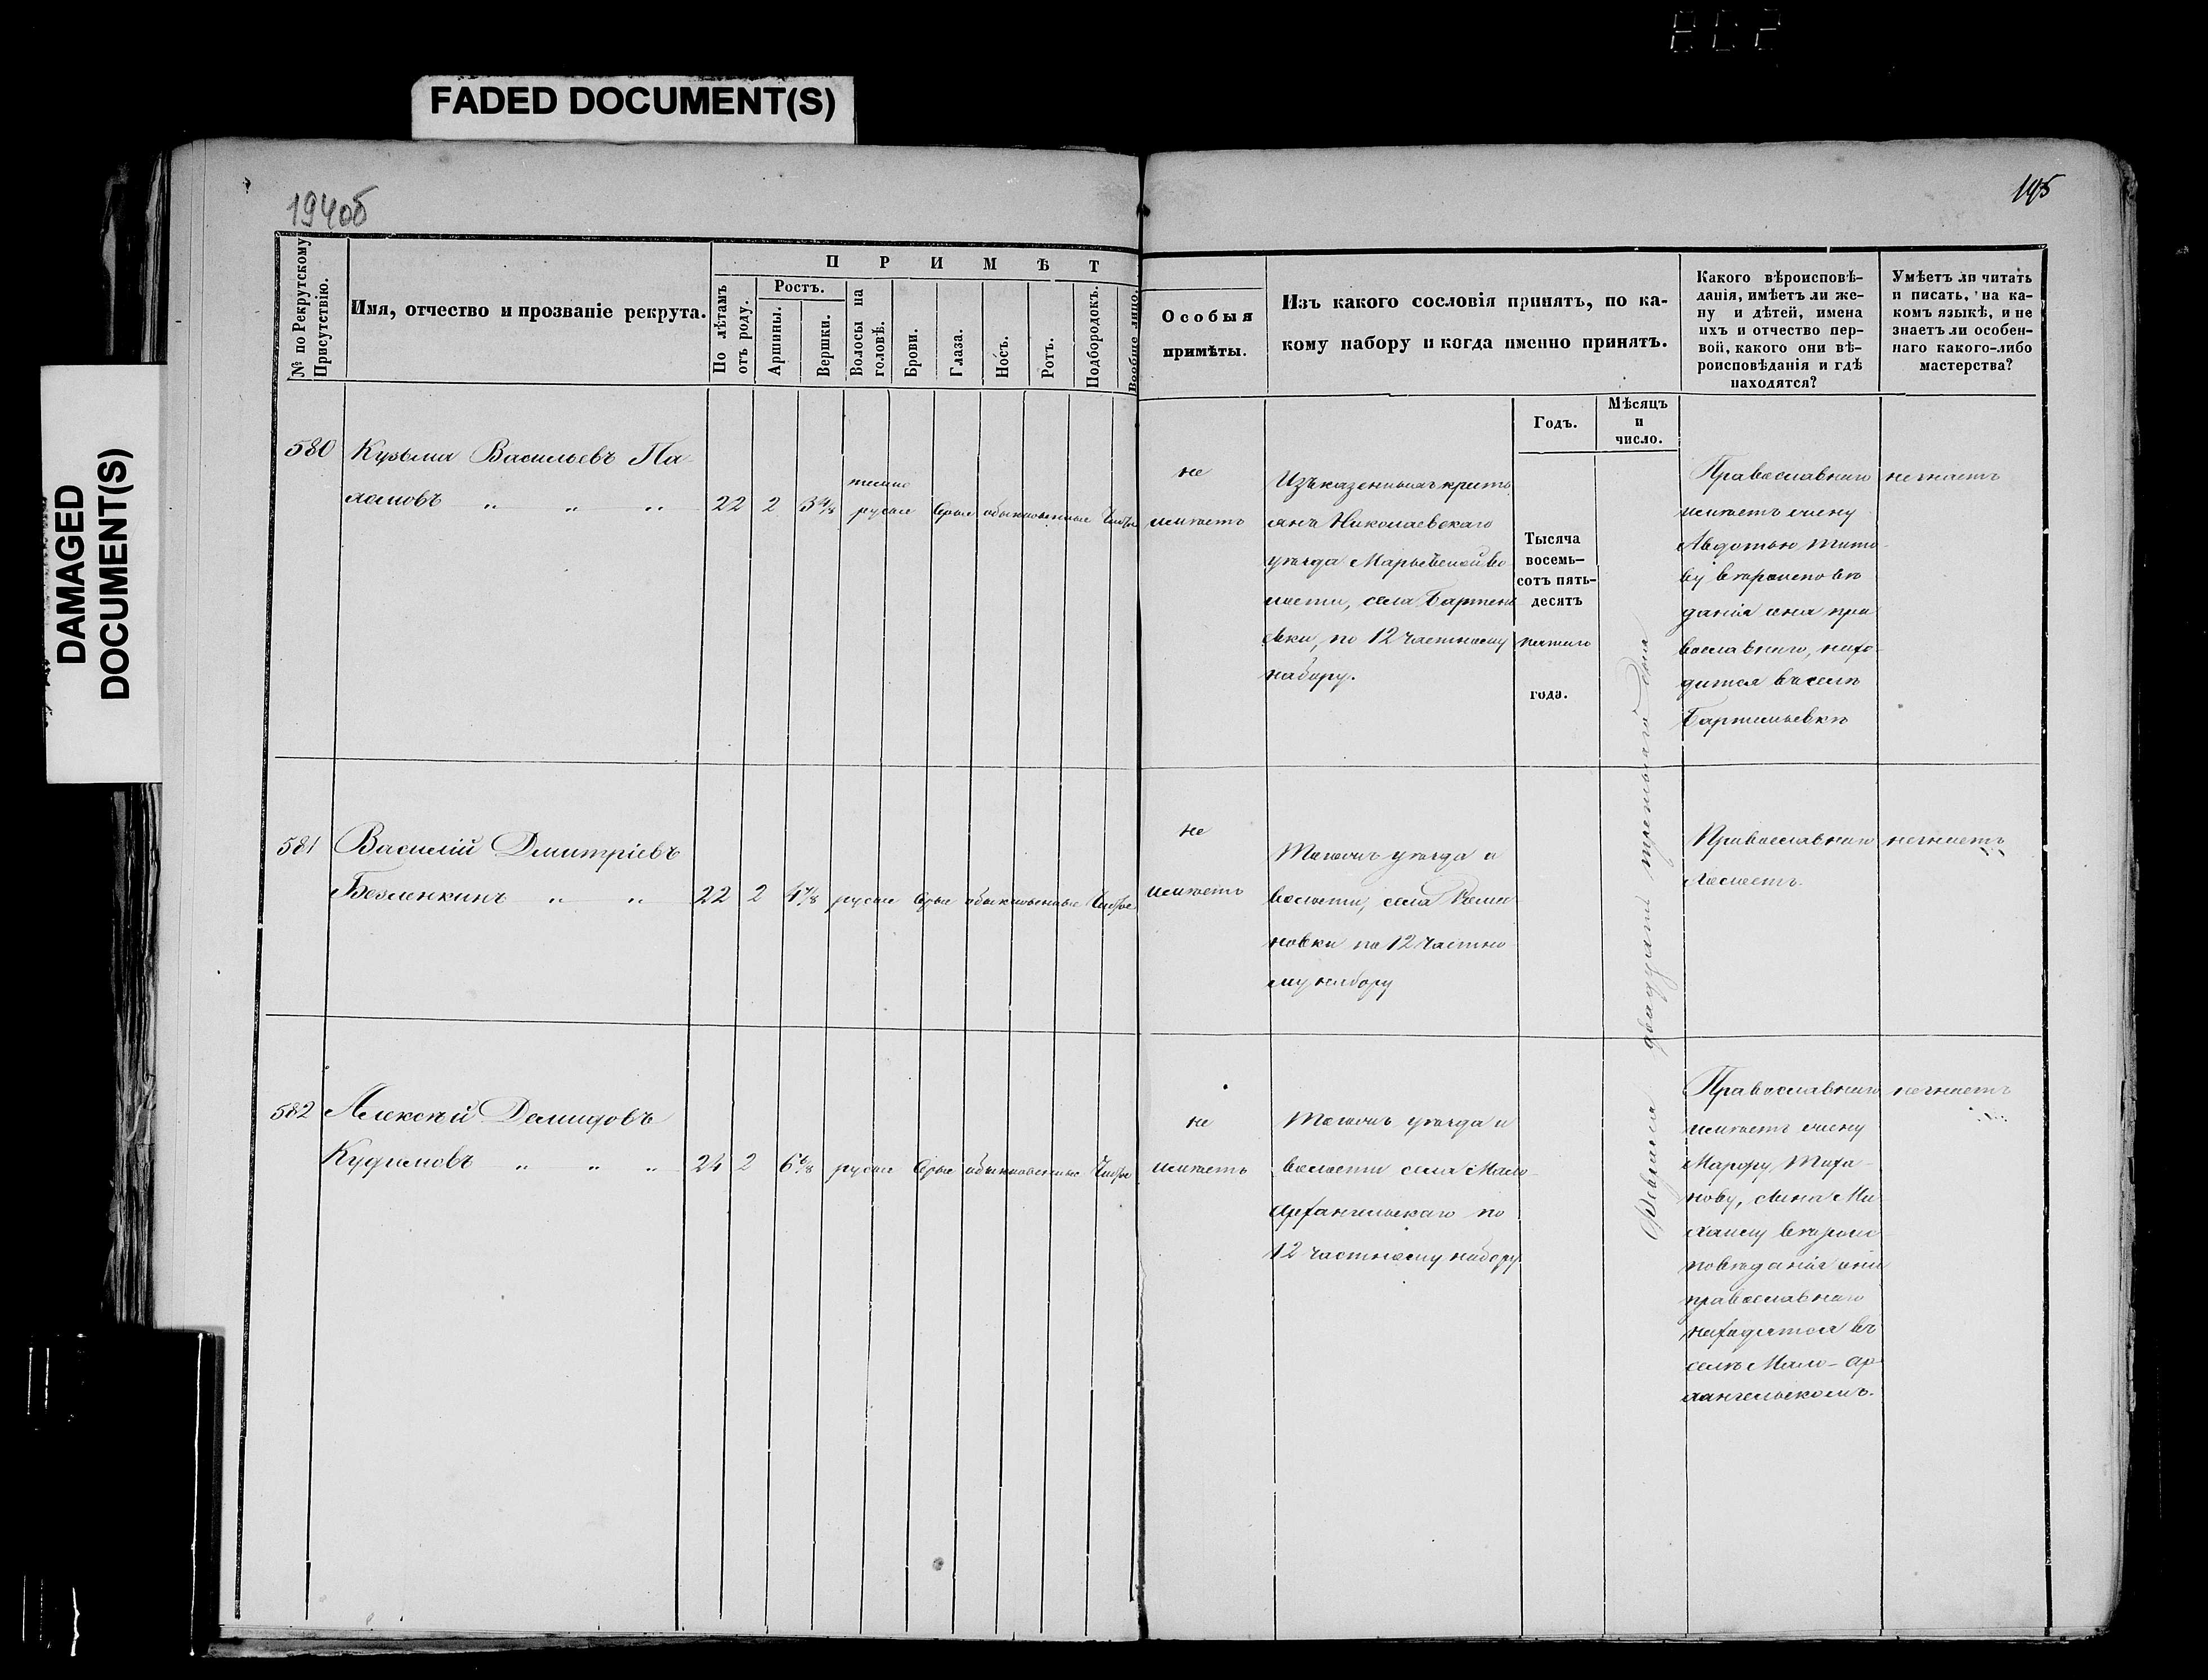 FADED DOCUMENT(S)
DAMAGED
DOCUMENT(S)
194об
195
№ по Рекрутскому
Присутствію.
Имя, отчество и прозваніе рекрута.
П Р И М Ѣ Т
По лѣтамъ
отъ роду.
Ростъ.
Аршины.
Вершки.
Волосы на
головѣ.
Брови.
Глаза.
Носъ.
Ротъ.
Подбородокъ.
Вообще лицо.
Особыя
примѣты.
Изъ какого сословія принятъ, по ка-
кому набору и когда именно принятъ.
Годъ.
Мѣсяцъ
и
число.
Какого вѣроисповѣ-
данія, имѣетъ ли же-
ну и дѣтей, имена
ихъ и отчество пер-
вой, какого они вѣ-
роисповѣданія и гдѣ
находятся?
Умѣетъ ли читать
и писать, на ка-
комъ языкѣ, и не
знаетъ ли особен-
наго какого-либо
мастерства?
580
Кузьма Васильевъ Па-
хомовъ " " "
22 2 3 4/8
темно
русые сѣрые обыкновенные Чистое
не
имѣетъ
Изъ казенныхъ кресть
янъ Николаевскаго
уѣзда Марьевской во
лости, села
по 12 частному
набору.
Тысяча
восемь-
сотъ пять-
десятъ
пятаго
года.
Февраля двадцать третьяго дня
Православнаго
имѣетъ жену
Авдотью Тито
ву вѣроисповѣ
данія она пра
вославнаго, нахо-
дится въ селѣ
незнаетъ
581
Василій Дмитріевъ
22 2 4 7/8 русые сѣрые обыкновенные Чистое
не
имѣетъ
Тогожъ уѣзда и
волости, села Рома
новки по 12 частно
му набору
Православнаго
Холостъ.
незнаетъ
582
Алексѣй Демидовъ
24 2 6 6/8 русые сѣрые обыкновенные Чистое
не
имѣетъ
Тогожъ уѣзда и
волости села Мало-
Архангельскаго по
12 частному набору.
Православнаго
имѣетъ жену
Марфу Тиха-
нову, сына Ми
хаилу вѣроис
повѣданія они
православнаго
находятся въ
селѣ Мало-Ар
хангельскомъ.
незнаетъ